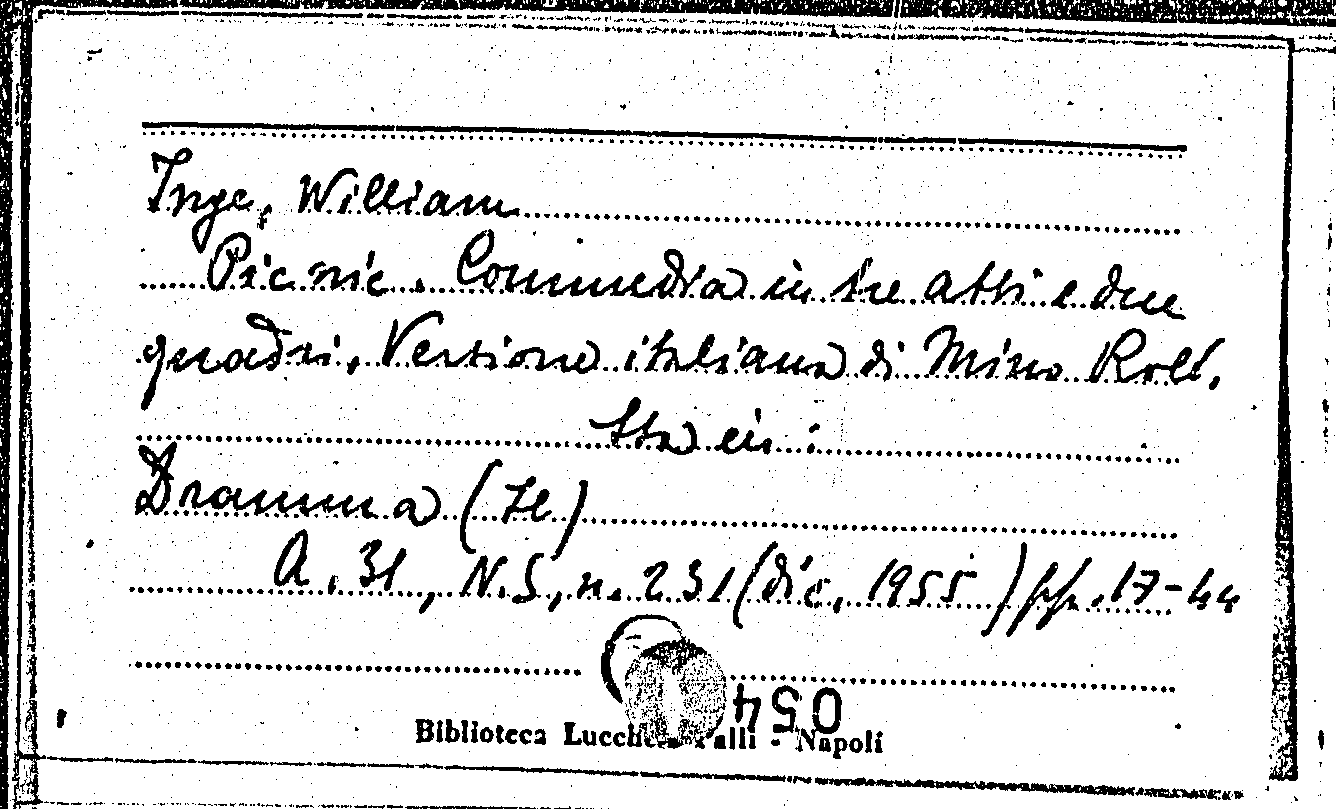 Inge, William
Picnic. Commedia in tre atti e due
quadri. Versione italiana di Mino Roli.
Sta in:
Dramma (Il)
A. 31, N.S., n. 231 (dic. 1955) pp. 17-44
054
Biblioteca Lucchesi Palli - Napoli